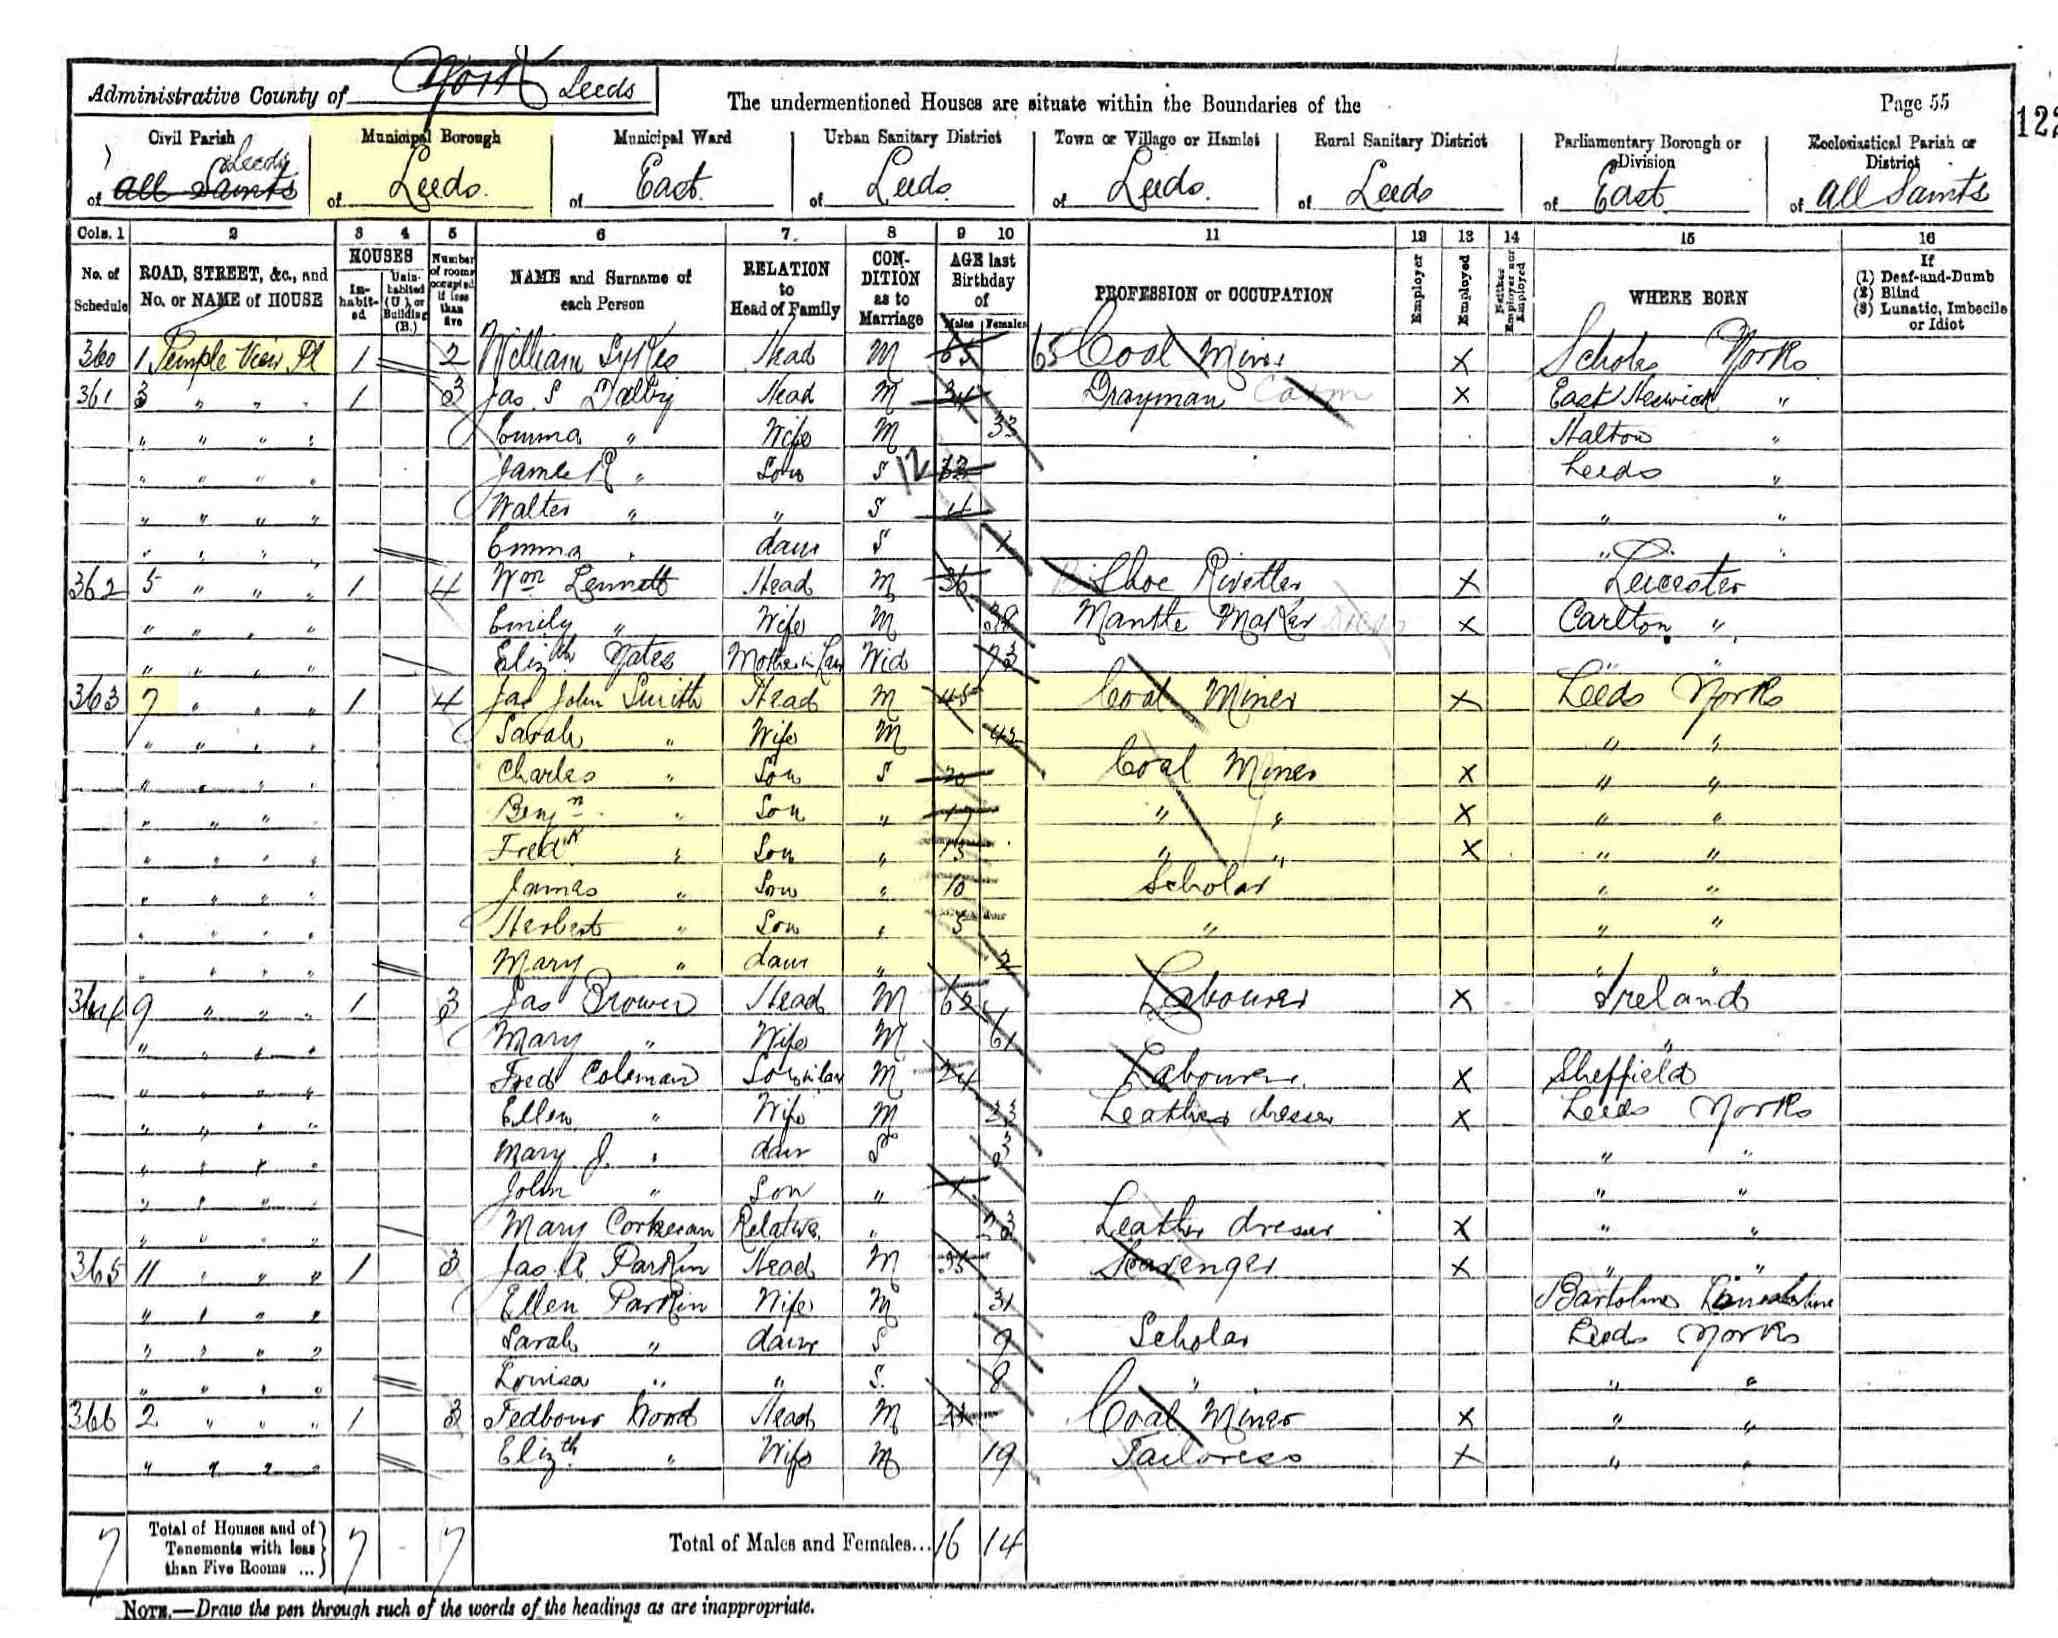 Administrative County of York Leeds
The undermentioned Houses are situate within the Boundaries of the
Page 55
122
Civil Parish of All Saints Leeds
Municipal Borough of Leeds.
Municipal Ward of East.
Urban Sanitary District of Leeds.
Town or Village or Hamlet of Leeds.
Rural Sanitary District of Leeds
Parliamentary Borough or Division of East
Ecclesiastical Parish or District of All Saints
Cols. 1 2 3 4 5 6 7. 8 9 10 11 12 13 14 15 16
No. of Schedule
ROAD, STREET, &c., and No. or NAME of HOUSE
HOUSES
In-habit-ed
Unin-habited (U.), or Building (B.)
Number of rooms occupied if less than five
NAME and Surname of each Person
RELATION to Head of Family
CON-DITION as to Marriage
AGE last Birthday of
Males Females
PROFESSION or OCCUPATION
Employer
Employed
Neither Employer nor Employed
WHERE BORN
If
(1) Deaf-and-Dumb
(2) Blind
(3) Lunatic, Imbecile or Idiot
360 1 Temple View Pl 1 2 William Sykes Head M 65 65 Coal Miner X Scholes Yorks
361 3 " " " 1 3 Jas S Dalby Head M 34 Drayman X East Keswick "
" " " " Emma " Wife M 33 Halton "
" " " " James R " Son S 12 Leeds "
" " " " Walter " " S 4 " "
" " " " Emma " daur S 1 " "
362 5 " " " 1 4 Wm Lennett Head M 36 Shoe Rivetter X Leicester
" " " " Emily " Wife M 38 Mantle Maker X Carlton "
" " " " Elizth Yates Mother in Law Wid 73 " "
363 7 " " " 1 4 Jas John Smith Head M 45 Coal Miner X Leeds Yorks
" " " " Sarah " Wife M 42 " "
" " " " Charles " Son S 20 Coal Miner X " "
" " " " Benjn " Son " 17 " " X " "
" " " " Fredk " Son " 13 " " X " "
" " " " James " Son " 10 Scholar " "
" " " " Herbert " Son " 5 " " "
" " " " Mary " daur " 2 " "
364 9 " " " 1 3 Jas Brower Head M 62 Labourer X Ireland
" " " " Mary " Wife M 61 "
" " " " Fred Coleman Son in law M 24 Labourer X Sheffield
" " " " Ellen " Wife M 23 Leather dresser X Leeds Yorks
" " " " Mary J. " daur S 3 " "
" " " " John " Son " 1 " "
" " " " Mary Corkeran Relative " 23 Leather dresser X " "
365 11 " " " 1 3 Jas A Parkin Head M 33 Scavenger X " "
" " " " Ellen Parkin Wife M 31
" " " " Sarah " daur S 9 Scholar Leeds Yorks
" " " " Louisa " " S. 8 " " "
366 2 " " " 1 3 Wood Head M 21 Coal Miner X " "
" " " " Elizth " Wife M 19 Tailoress X " "
7 Total of Houses and of Tenements with less than Five Rooms ... 7 - 7 Total of Males and Females... 16 14
NOTE.—Draw the pen through such of the words of the headings as are inappropriate.